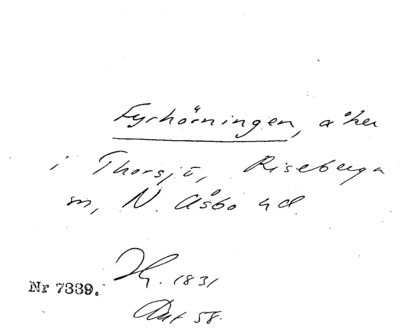 Fyrhörningen, åker
i Thorsjö, Riseberga
sn, N. Åsbo hd.
Hy. 1831
Nr 7339.
Akt 58.